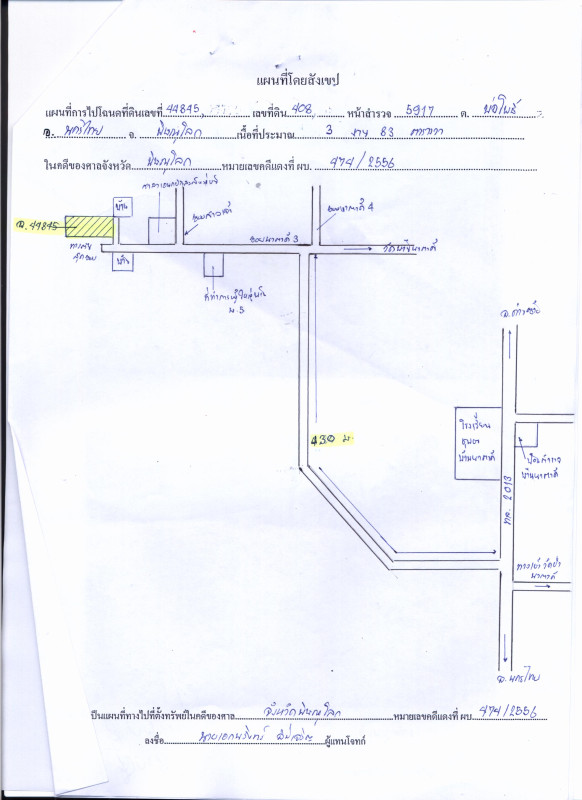 แผนที่โดยสังเขป
แผนที่การไปโฉนดที่ดินเลขที่ 44845, เลขที่ดิน 408 หน้าสำรวจ 5917 ต. บ่อโพธิ์
อ. นครไทย จ. พิษณุโลก เนื้อที่ประมาณ 3 งาน 83 ตารางวา
ในคดีของศาลจังหวัด พิษณุโลก หมายเลขคดีแดงที่ ผบ. 474/2556
บ้าน
ฉ. 44845
บ้าน
ซอยนาตาดี 3
ซอยนาตาดี 4
วัดนาตาดี
ที่ทำการผู้ใหญ่บ้าน
ม.5
430 ม.
อ. ด่านซ้าย
โรงเรียน
ชุมชน
บ้านนาตาดี
ป้อมตำรวจ
บ้านนาตาดี
ทล. 2013
ทางเข้าวัดป่า
นาตาดี
อ. นครไทย
เป็นแผนที่ทางไปที่ตั้งทรัพย์ในคดีของศาล จังหวัดพิษณุโลก หมายเลขคดีแดงที่ ผบ. 474/2556
ลงชื่อ ผู้แทนโจทก์